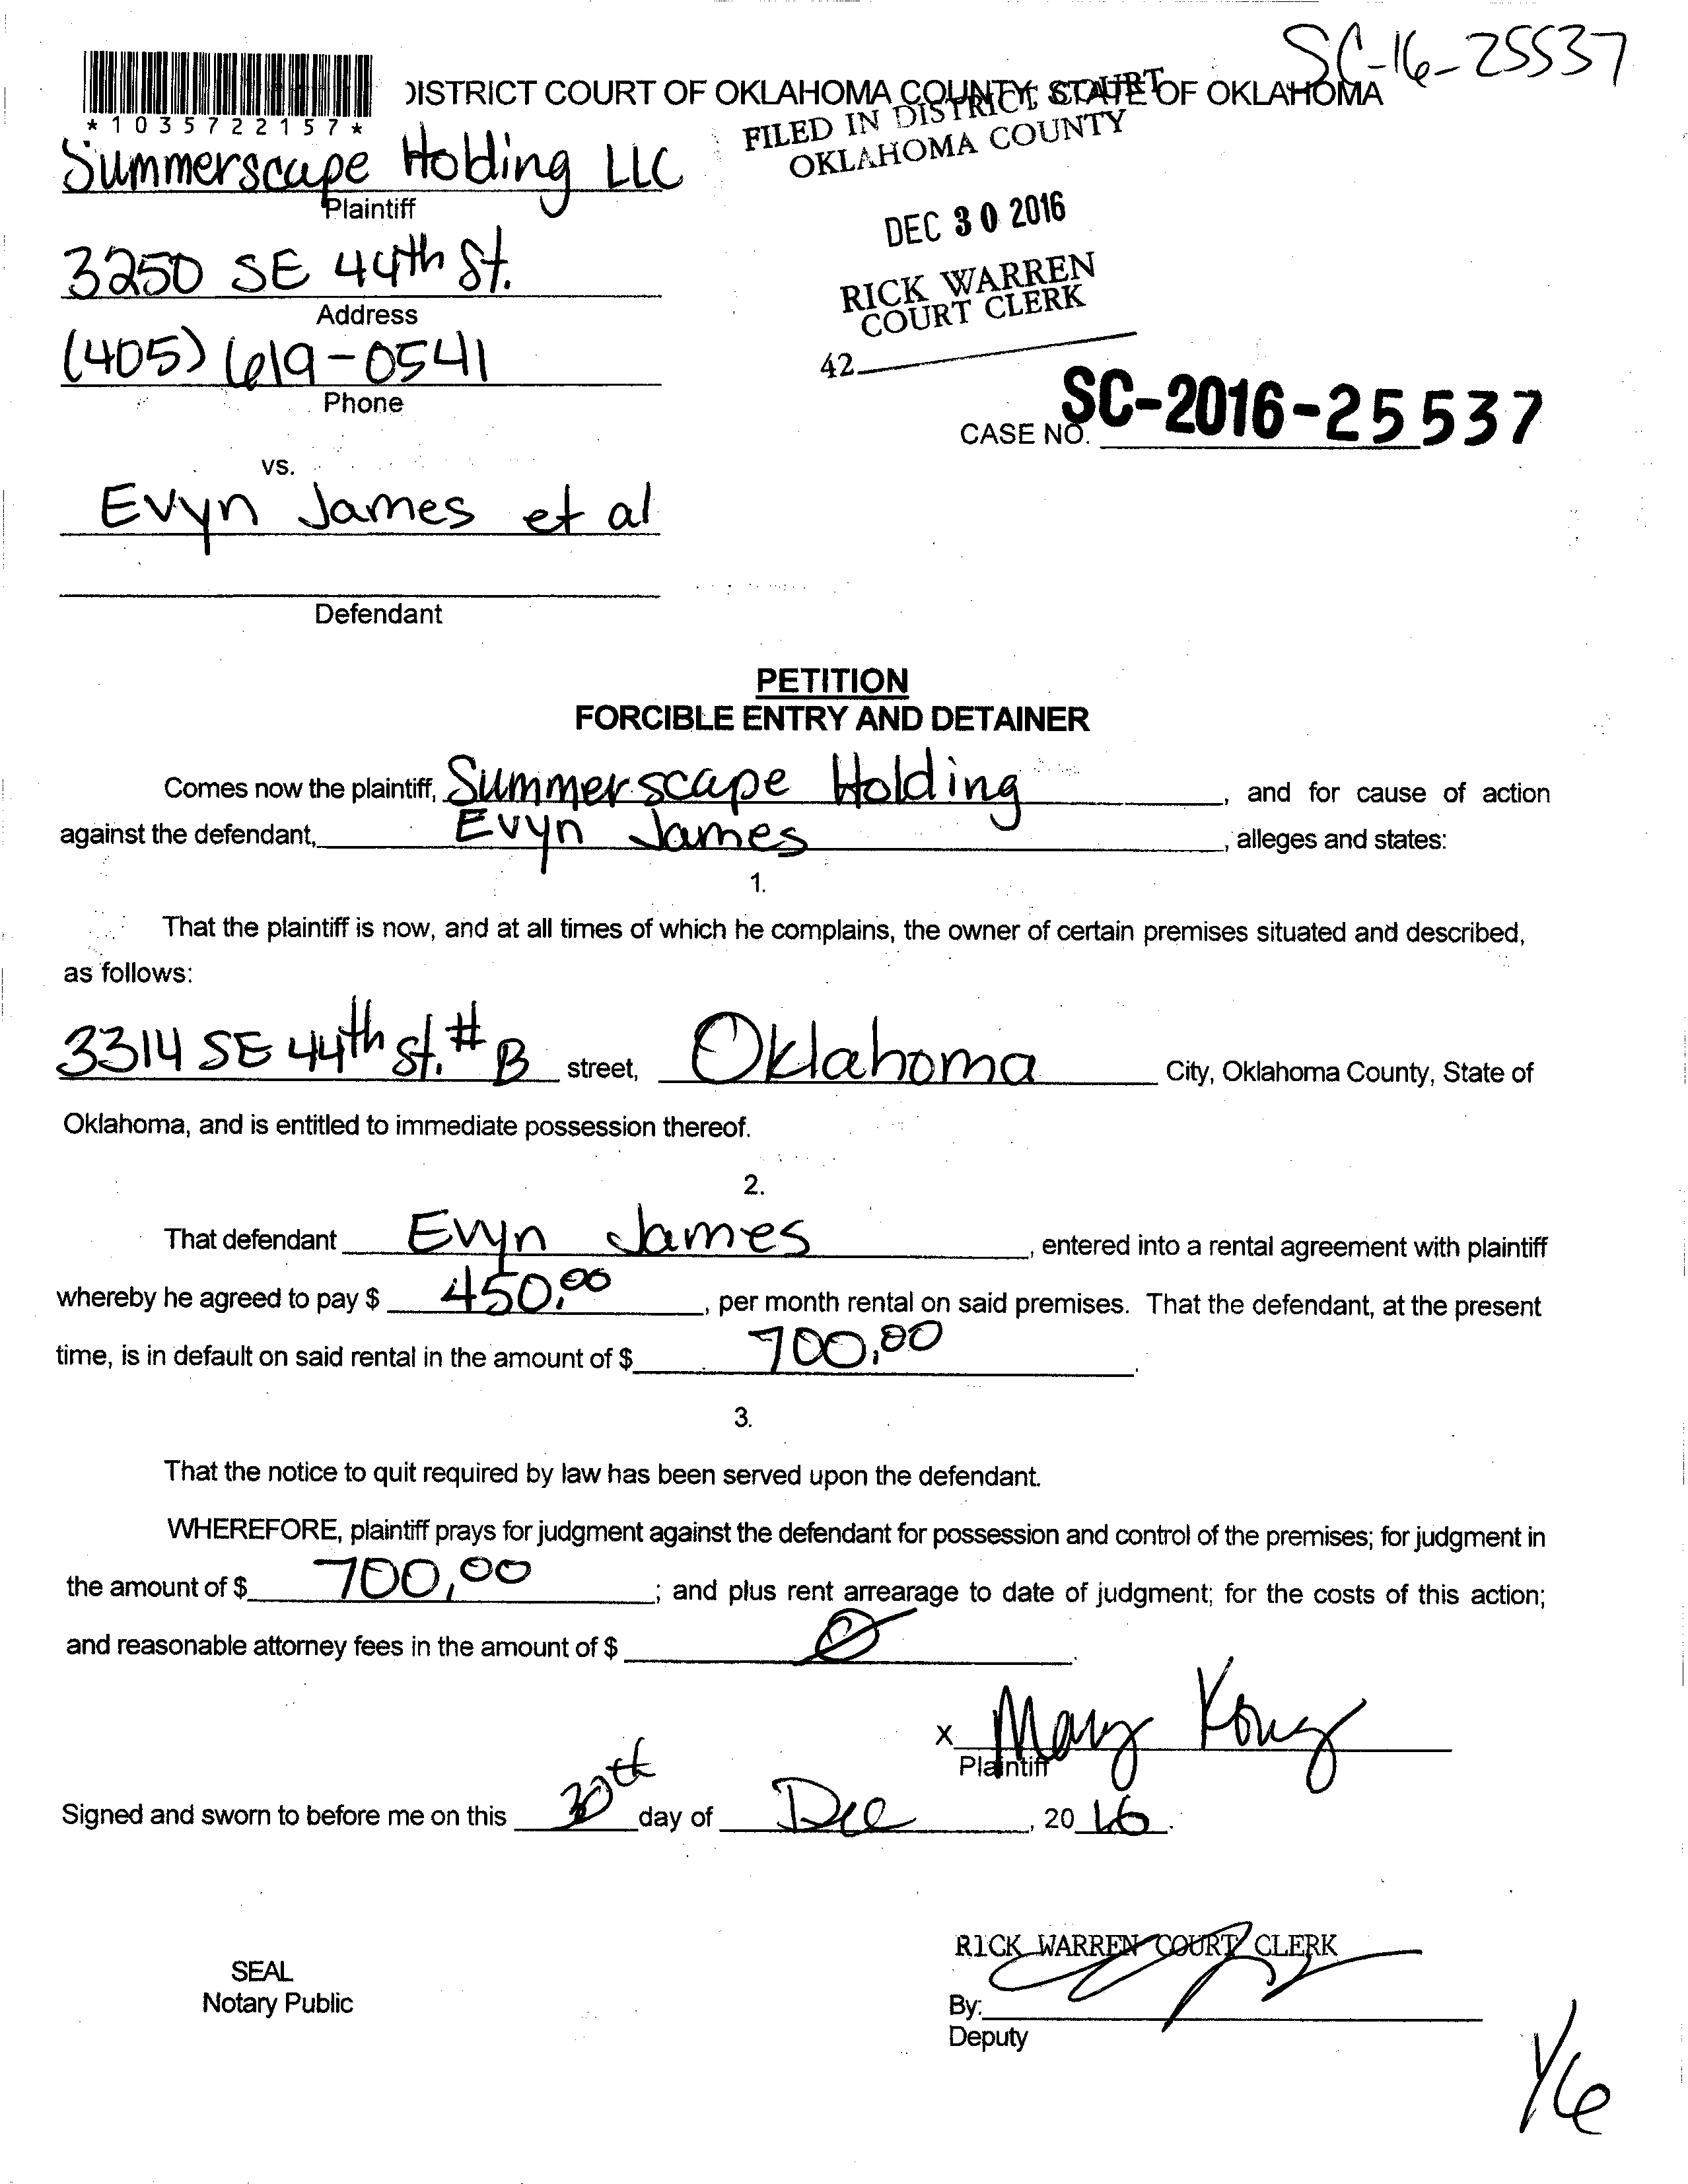 SC-16-25537
DISTRICT COURT OF OKLAHOMA COUNTY, STATE OF OKLAHOMA
*1035722157*
FILED IN DISTRICT COURT
OKLAHOMA COUNTY
Summerscape Holding LLC
Plaintiff
DEC 30 2016
3250 SE 44th St.
Address
RICK WARREN
COURT CLERK
(405) 619-0541
Phone
42
CASE NO. SC-2016-25537
vs.
Evyn James et al
Defendant
PETITION
FORCIBLE ENTRY AND DETAINER
Comes now the plaintiff, Summerscape Holding, and for cause of action
against the defendant, Evyn James, alleges and states:
1.
That the plaintiff is now, and at all times of which he complains, the owner of certain premises situated and described,
as follows:
3314 SE 44th St. # B street, Oklahoma City, Oklahoma County, State of
Oklahoma, and is entitled to immediate possession thereof.
2.
That defendant Evyn James, entered into a rental agreement with plaintiff
whereby he agreed to pay $ 450.00, per month rental on said premises. That the defendant, at the present
time, is in default on said rental in the amount of $ 700.00.
3.
That the notice to quit required by law has been served upon the defendant.
WHEREFORE, plaintiff prays for judgment against the defendant for possession and control of the premises; for judgment in
the amount of $ 700.00; and plus rent arrearage to date of judgment; for the costs of this action;
and reasonable attorney fees in the amount of $ 0.
X Mary Kong
Plaintiff
Signed and sworn to before me on this 30th day of Dec, 2016.
RICK WARREN COURT CLERK
SEAL
Notary Public
By:
Deputy
1/6